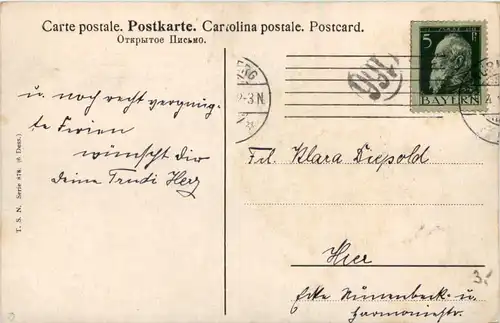 Carte postale. Postkarte. Cartolina postale. Postcard.
Открытое Письмо.
5
BAYERN
3 N.
u. noch recht vergnüg-
te Ferien
wünscht dir
deine Trudi Herz
Frl. Klara Diepold
Hier
Ecke Nunnenbeck- u.
Harmoniestr.
3,-
T. S. N. Serie 878. (6 Dess.)